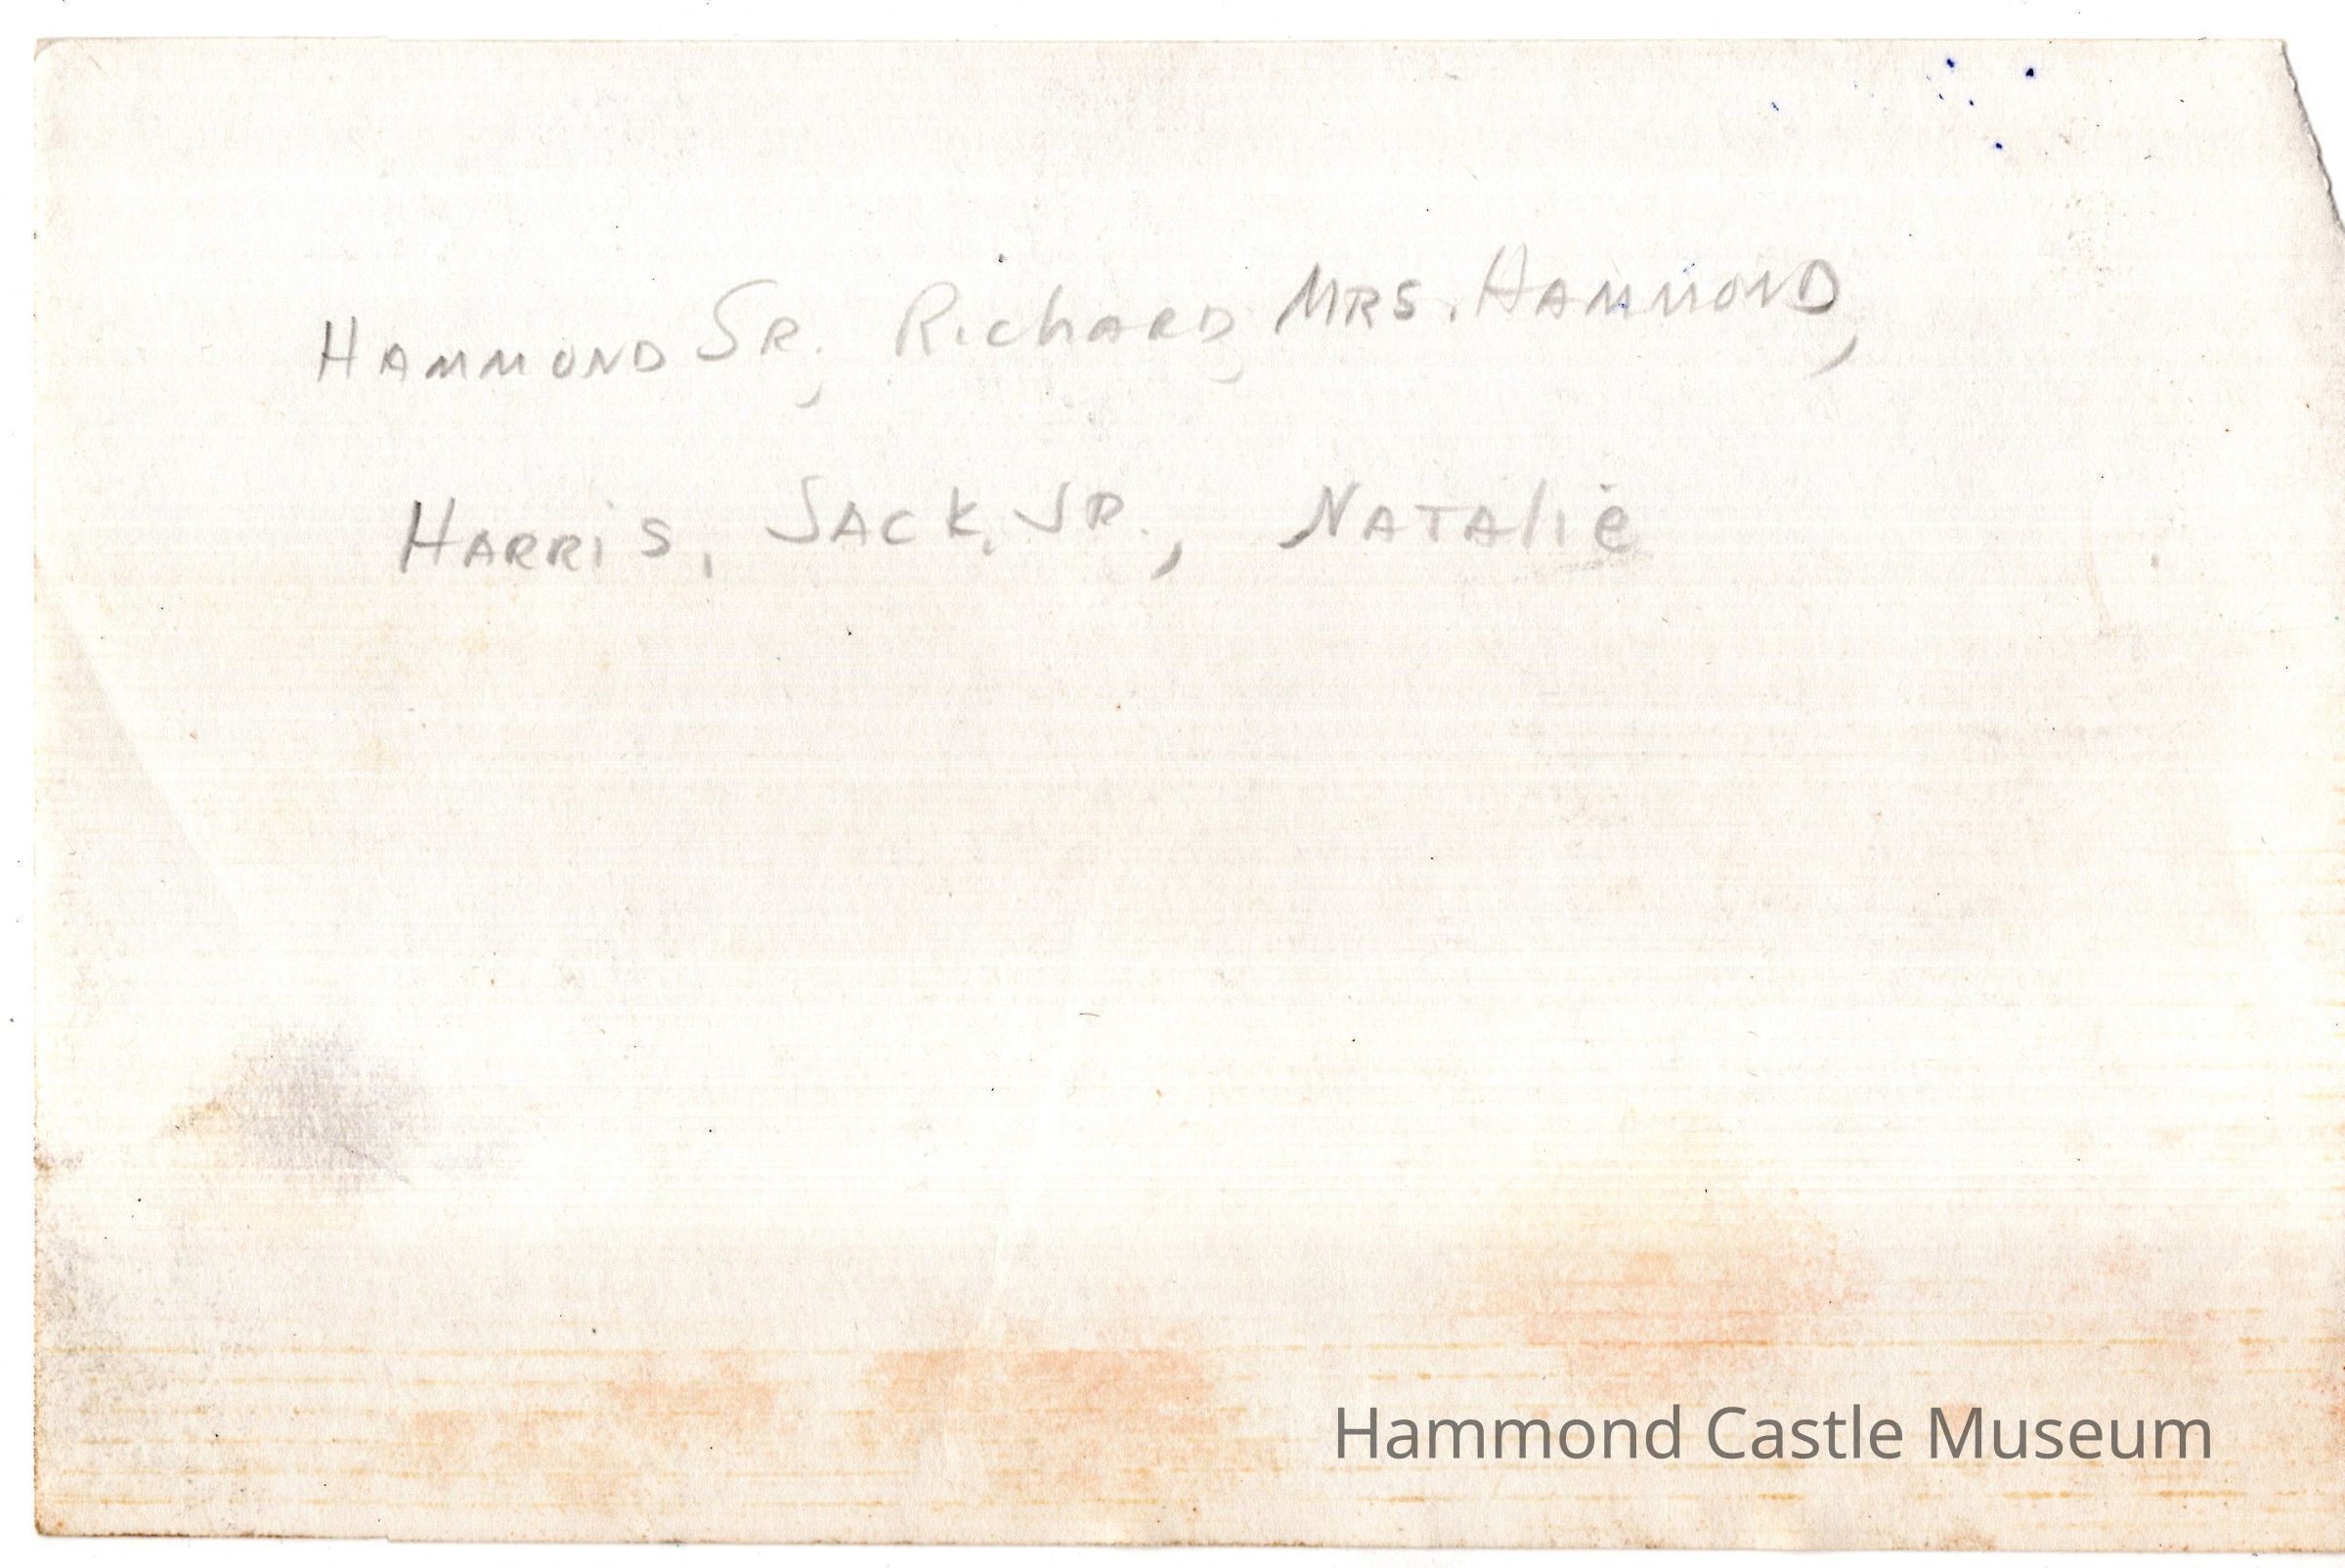 HAMMOND SR., RichARD, MRS. HAMMOND,
HARRiS, JACK, JR., NATAliE
Hammond Castle Museum